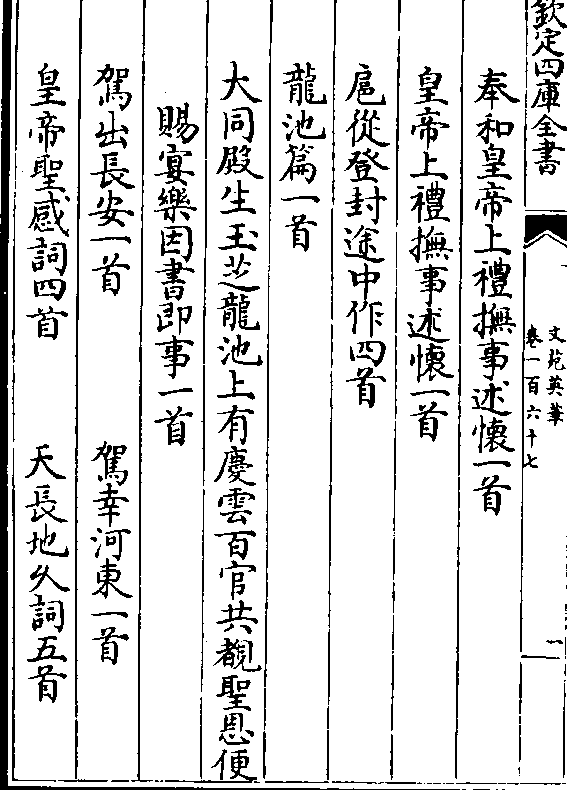 欽定四庫全書
文苑英華
卷一百六十七
一
奉和皇帝上禮撫事述懷一首
皇帝上禮撫事述懷一首
扈從登封途中作四首
龍池篇一首
大同殿生玉芝龍池上有慶雲百官共覩聖恩便
賜宴樂因書即事一首
駕出長安一首 駕幸河東一首
皇帝聖感詞四首 天長地久詞五首